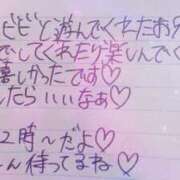 ビビと遊んでくれたお兄
でしてくれたり楽しんでく
喜しかったです♡
したらいいなあ♡
2時～だよ♡
ん待ってるね♡